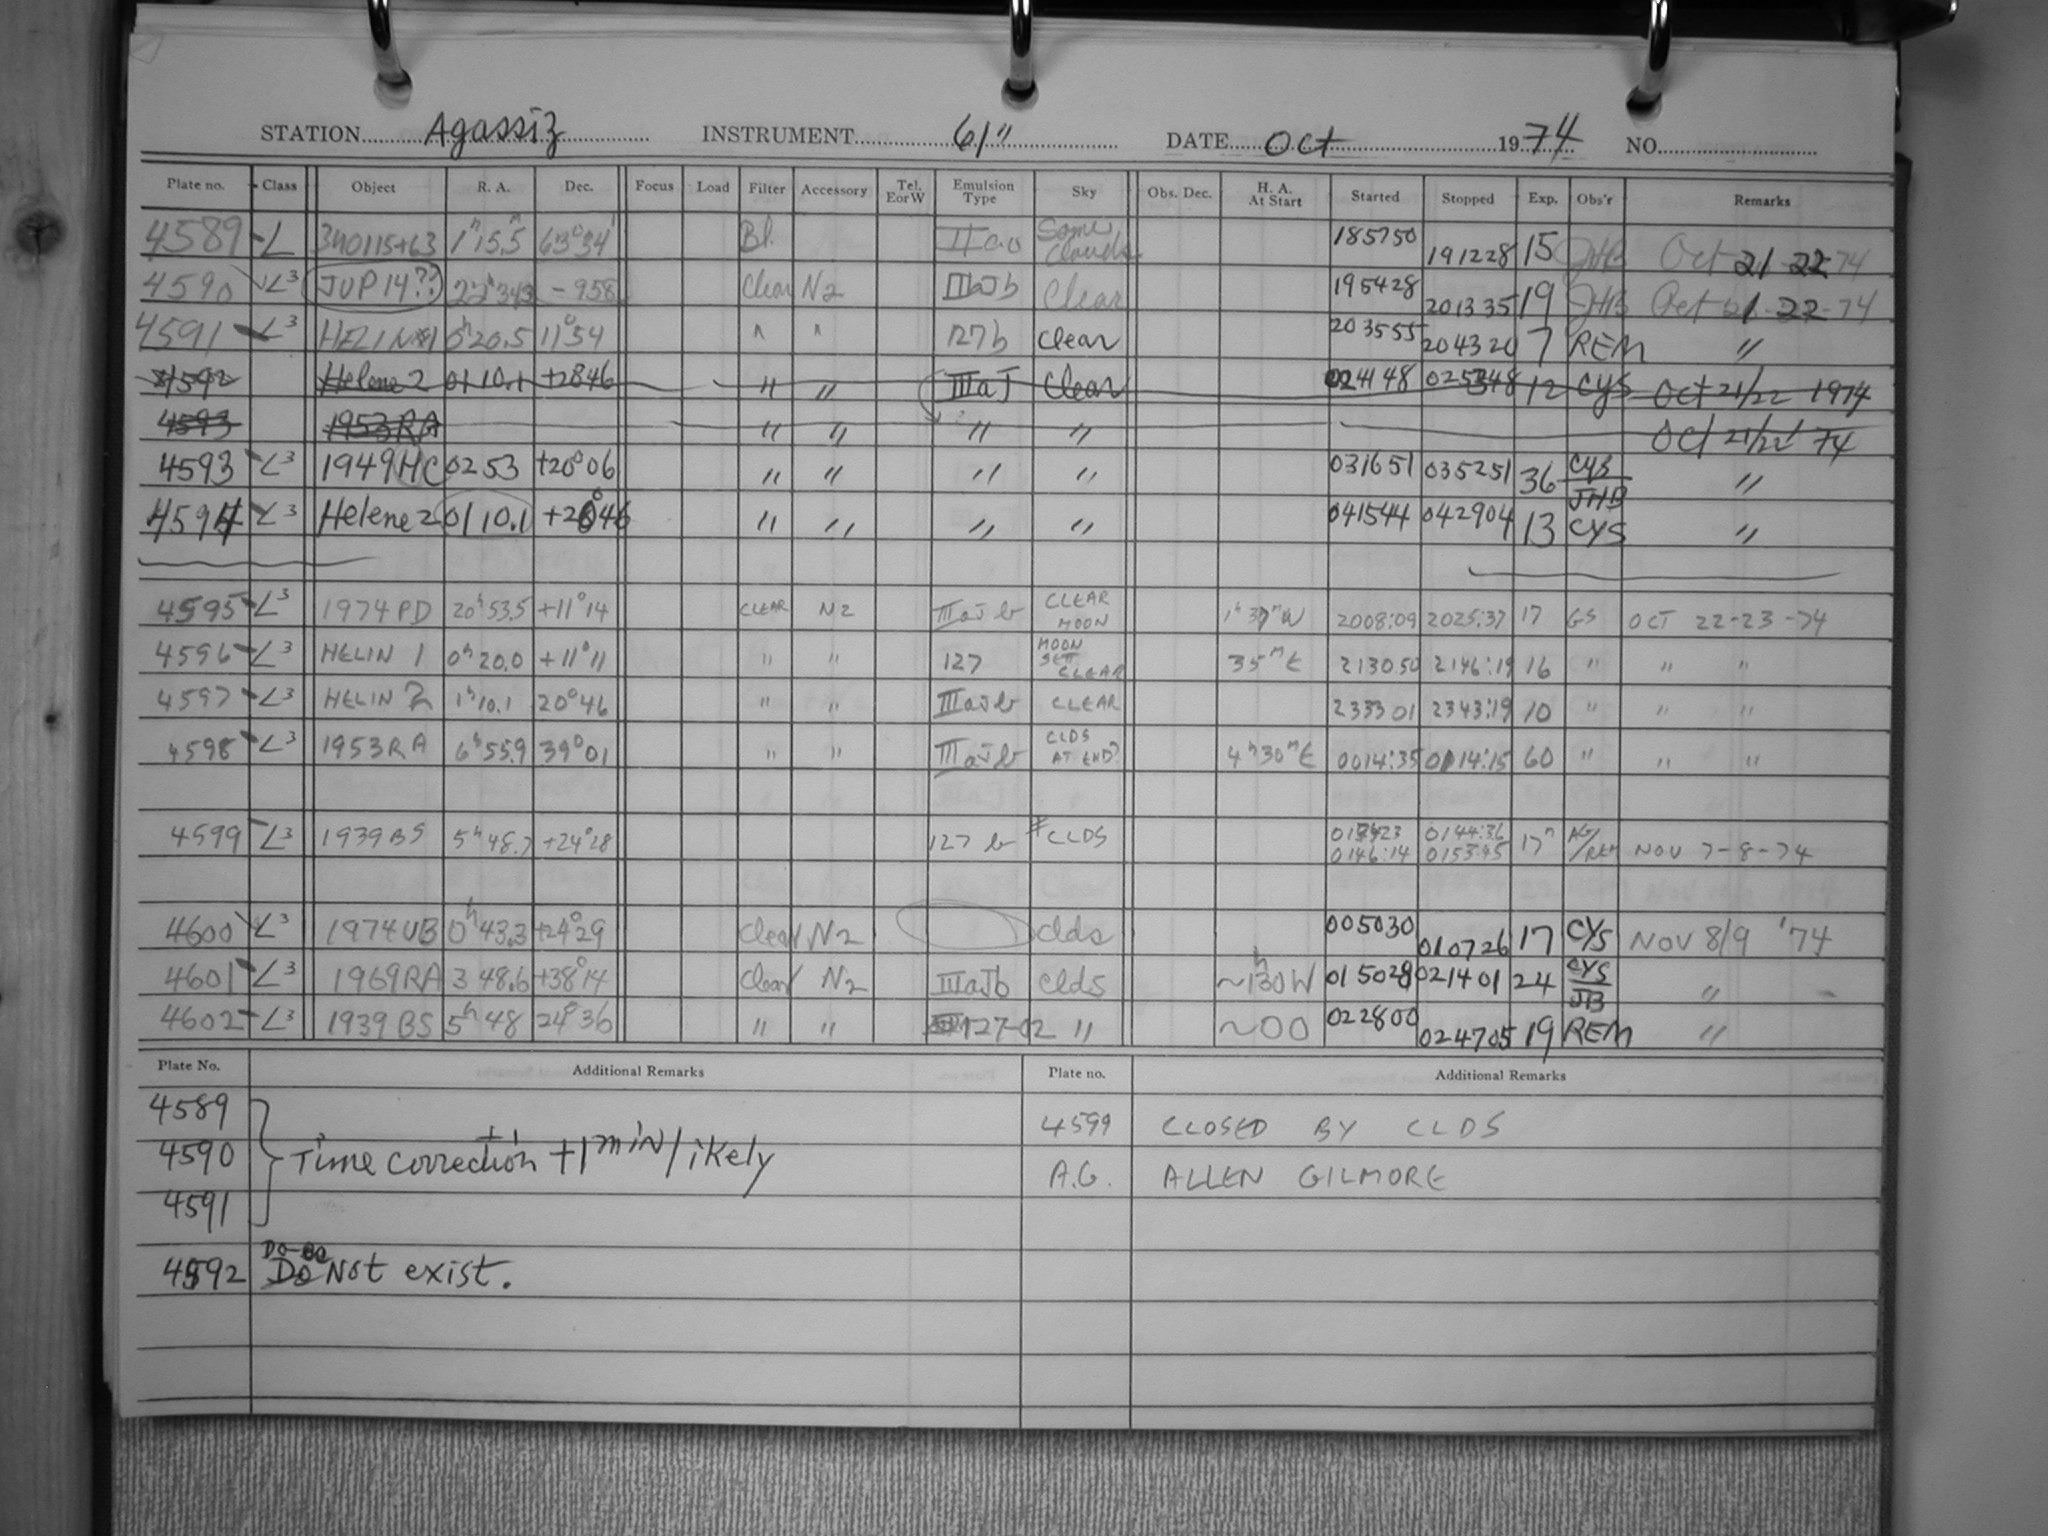 STATION Agassiz INSTRUMENT 61" DATE Oct 1974 NO.
Plate no. Class Object R. A. Dec. Focus Load Filter Accessory Tel. EorW Emulsion Type Sky Obs. Dec. H. A. At Start Started Stopped Exp. Obs'r Remarks
4589 L 3U0115+63 1h15.5m 63°34' Bl. IIao Some Clouds 185750 191228 15 JHB Oct 21-22-74
4590 L3 JUP14?? 22h343 -958 Clear N2 IIIaJb Clear 195428 201335 19 JHB Oct 21-22-74
4591 L3 HELIN#1 0h20.5 11°54 " " 127b Clear 203555 204320 7 REM "
4592 Helene 2 01 10.1 +2846 " " IIIaJ Clear 024148 025348 12 CYS Oct 21/22 1974
4593 1953RA " " " " Oct 21/22 74
4593 L3 1949HC 02 53 +20°06 " " " " 031651 035251 36 CYS/JHB "
4594 L3 Helene 2 01 10.1 +20°46 " " " " 041544 042904 13 CYS "
4595 L3 1974 PD 20h53.5 +11°14 CLEAR N2 IIIaJb CLEAR MOON 1h37mW 2008:09 2025:37 17 GS OCT 22-23-74
4596 L3 HELIN 1 0h20.0 +11°11 " " 127 MOON SET CLEAR 35mE 2130:50 2146:19 16 " " "
4597 L3 HELIN 2 1h10.1 20°46 " " IIIaJb CLEAR 2333 01 2343:19 10 " " "
4598 L3 1953RA 6h55.9 39°01 " " IIIaJb CLDS AT END? 4h30mE 0014:35 0114:15 60 " " "
4599 L3 1939 BS 5h48.7 +24°28 127 b #CLDS 0144:36 17m AG/REM NOV 7-8-74
0146:14 0153:45
4600 L3 1974UB 0h43.3 +24°29 Clear N2 clds 005030 010726 17 CYS NOV 8/9 '74
4601 L3 1969RA 3 48.6 +38°14 Clear N2 IIIaJb clds ~1h30W 015028 021401 24 CYS/JB "
4602 L3 1939 BS 5h48 24°36 " " 127-02 " ~00 022800 024705 19 REM "
Plate No. Additional Remarks Plate no. Additional Remarks
4589 4599 CLOSED BY CLDS
4590 Time correction +1min likely A.G. ALLEN GILMORE
4591
4592 Do Not exist.